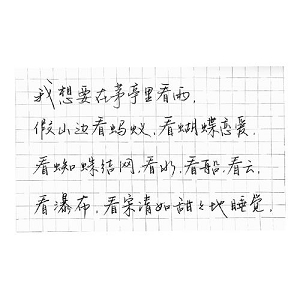 我想要在茅亭里看雨，
假山边看蚂蚁，看蝴蝶恋爱，
看蜘蛛结网，看水，看船，看云，
看瀑布，看宋清如甜甜地睡觉。